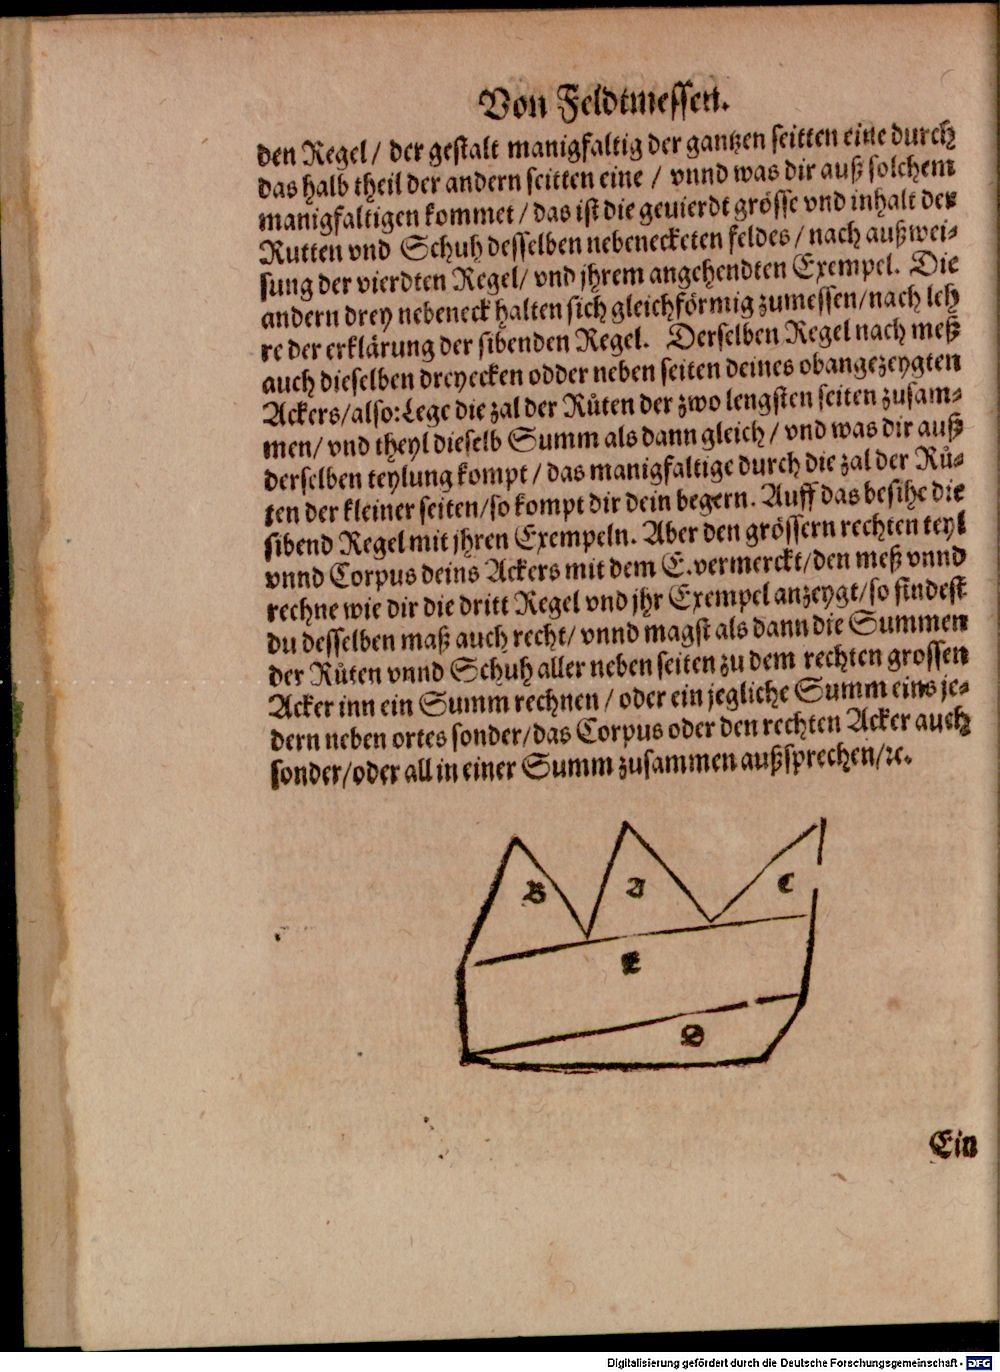 Von Feldtmessen.
den Regel / der gestalt manigfaltig der gantzen seitten eine durch
das halb theil der andern seitten eine / vnnd was dir auß solchem
manigfaltigen kommet / das ist die geuierdt grösse vnd inhalt der
Rutten vnd Schuh desselben nebenecketen feldes / nach außwei-
sung der vierdten Regel / vnd jhrem angehendten Exempel. Die
andern drey nebeneck halten sich gleichförmig zumessen / nach leh
re der erklärung der sibenden Regel. Derselben Regel nach meß
auch dieselben dreyecken odder neben seiten deines obangezeygten
Ackers / also: Lege die zal der Růten der zwo lengsten seiten zusam-
men / vnd theyl dieselb Summ als dann gleich / vnd was dir auß
derselben teylung kompt / das manigfaltige durch die zal der Rů-
ten der kleiner seiten / so kompt dir dein begern. Auff das besihe die
sibend Regel mit jhren Exempeln. Aber den grössern rechten teyl
vnnd Corpus deins Ackers mit dem E. vermerckt / den meß vnnd
rechne wie dir die dritt Regel vnd jhr Exempel anzeygt / so findest
du desselben maß auch recht / vnnd magst als dann die Summen
der Růten vnnd Schuh aller neben seiten zu dem rechten grossen
Acker inn ein Summ rechnen / oder ein jegliche Summ eins je-
dern neben ortes sonder / das Corpus oder den rechten Acker auch
sonder / oder all in einer Summ zusammen außsprechen / ꝛc.
B A C
E
D
Ein
Digitalisierung gefördert durch die Deutsche Forschungsgemeinschaft - DFG